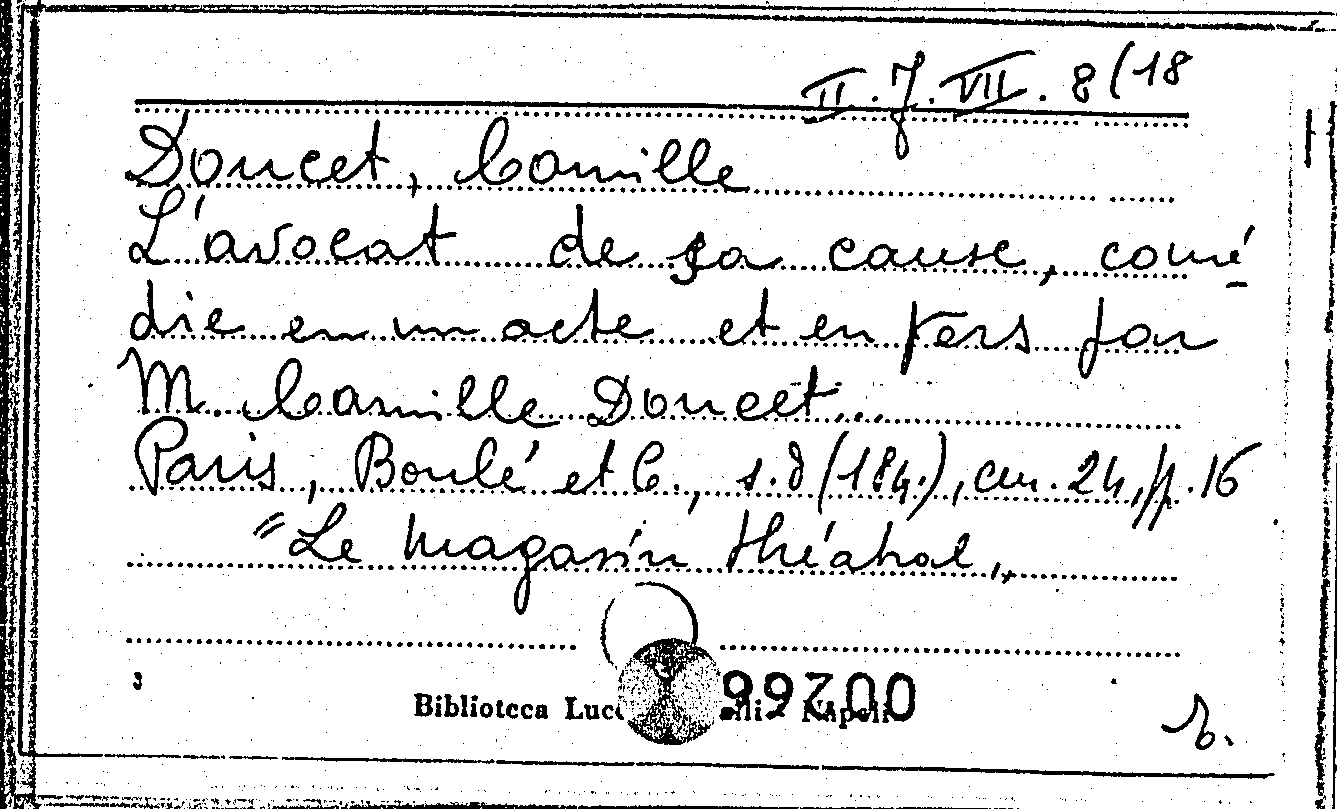 II. J. VII. 8(18
Doucet, Camille
L'avocat de sa cause, comé-
die en un acte et en vers par
M. Camille Doucet...
Paris, Boulé et C., s.d (184.), cm. 24, p. 16
"Le magasin théatral"
3
Biblioteca Napoli
99200